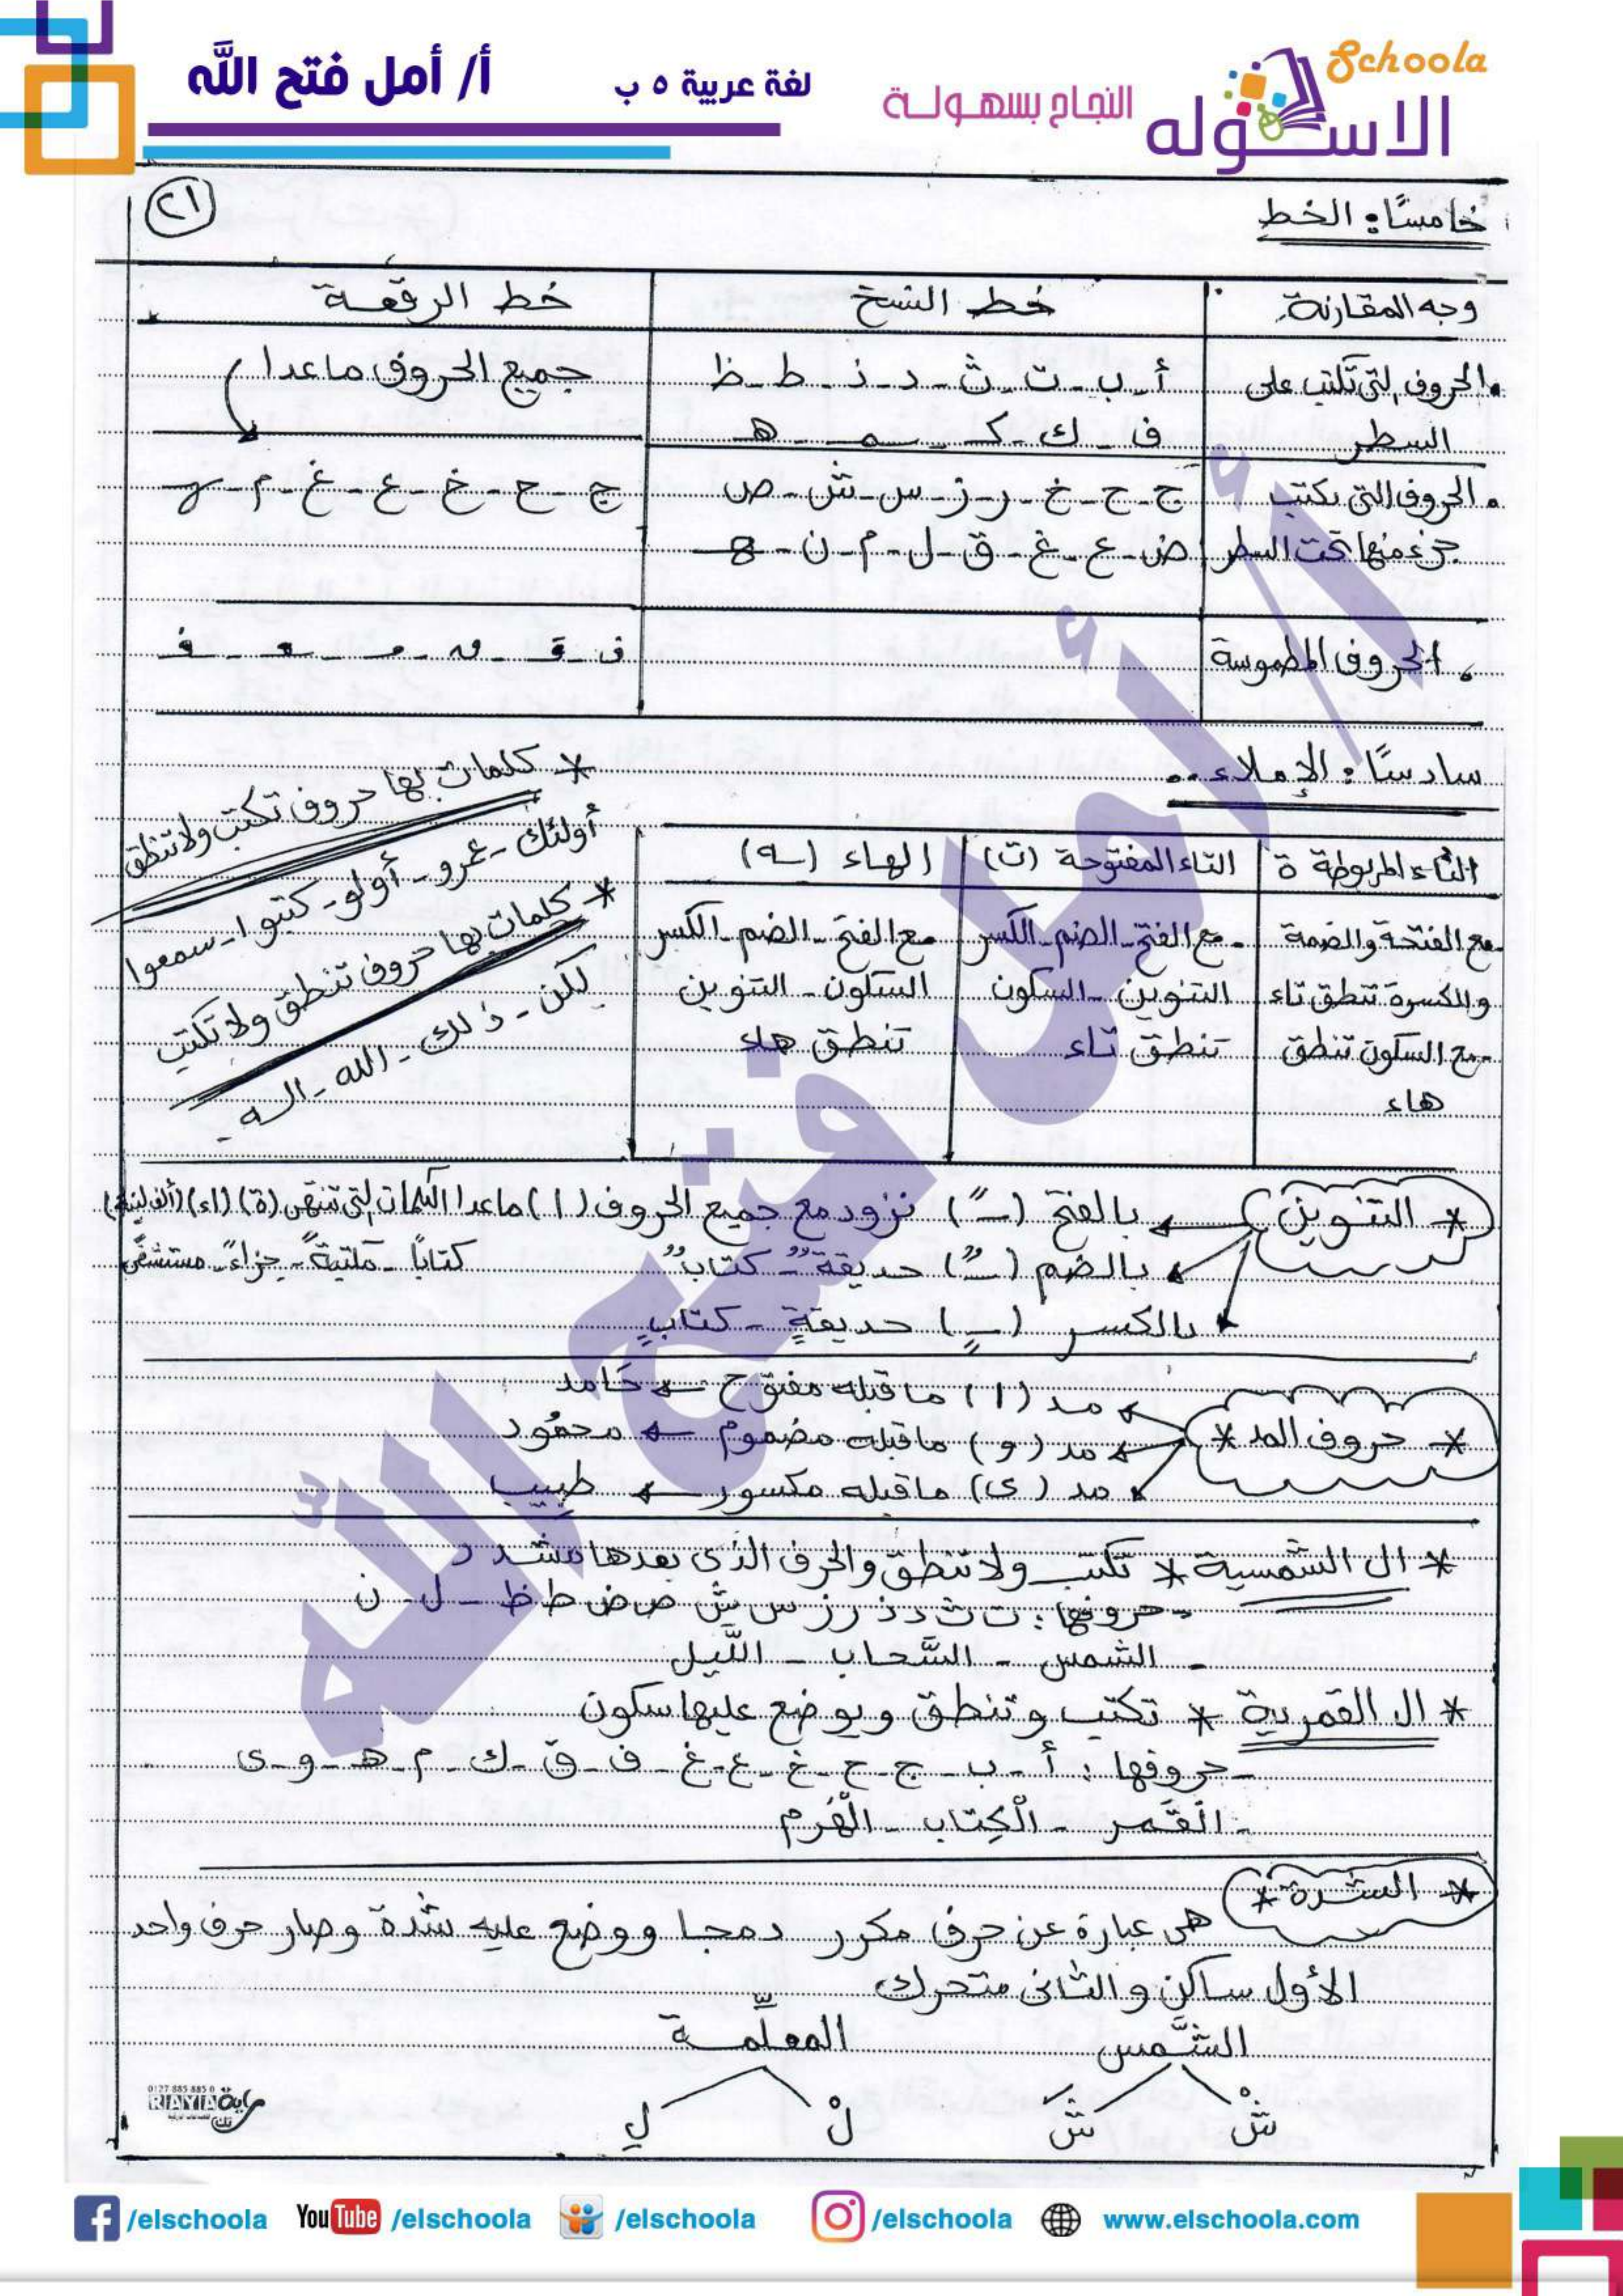 Schoola
الاسكوله
النجاح بسهولة
لغة عربية ٥ ب
أ/ أمل فتح الله
خامسًا: الخط
٢١
وجه المقارنة
خط النسخ
خط الرقعة
الحروف التى تكتب على السطر
أ - ب - ت - ث - د - ذ - ط - ظ
جميع الحروف ماعدا
ف - ك - كـ - ـمـ - هـ
الحروف التى يكتب جزء منها تحت السطر
ج - ح - خ - ر - ز - س - ش - ص
ض - ع - غ - ق - ل - م - ن - ـهـ
ج - ح - خ - ع - غ - م - ـهـ
الحروف المطموسة
سادسًا: الإملاء..
التاء المربوطة ة
التاء المفتوحة (ت)
الهاء (ـه)
مع الفتحة والضمة
والكسرة تنطق تاء
- مع السكون تنطق
هاء
- مع الفتح - الضم - الكسر
التنوين - السكون
تنطق تاء
مع الفتح - الضم - الكسر
السكون - التنوين
تنطق هاء
* كلمات بها حروف تكتب ولا تنطق
أولئك - عمرو - أولو - كتبوا - سمعوا
* كلمات بها حروف تنطق ولا تكتب
لكن - ذلك - الله - إله
* التنوين
بالفتح (ـً) نزود مع جميع الحروف (ا) ماعدا الكلمات التى تنتهى (ة) (اء) (ألف لينة)
كتابًا - مكتبةً - جزاءً - مستشفًى
بالضم (ـٌ) حديقةٌ - كتابٌ
بالكسر (ـٍ) حديقةٍ - كتابٍ
* حروف المد *
مد (ا) ما قبله مفتوح ← حَامد
مد (و) ما قبله مضموم ← محمُود
مد (ى) ما قبله مكسور ← طبِيب
* ال الشمسية * تكتب ولا تنطق والحرف الذى بعدها مشدد
- حروفها: ت ث د ذ ر ز س ش ص ض ط ظ - ل - ن
- الشمس - السَّحاب - اللَّيل
* ال القمرية * تكتب وتنطق ويوضع عليها سكون
- حروفها: أ - ب - ج - ح - خ - ع - غ - ف - ق - ك - م - هـ - و - ى
- الْقَمر - الْكِتاب - الْهَرم
* الشدة *
هى عبارة عن حرف مكرر دمجا ووضع عليه شدة وصار حرف واحد
الأول ساكن والثانى متحرك
الشَّمس
المعلِّمة
شْ
شَ
لْ
لِ
0127 885 885 0
RAYA
/elschoola
YouTube /elschoola
/elschoola
/elschoola
www.elschoola.com
أ/ أمل فتح الله